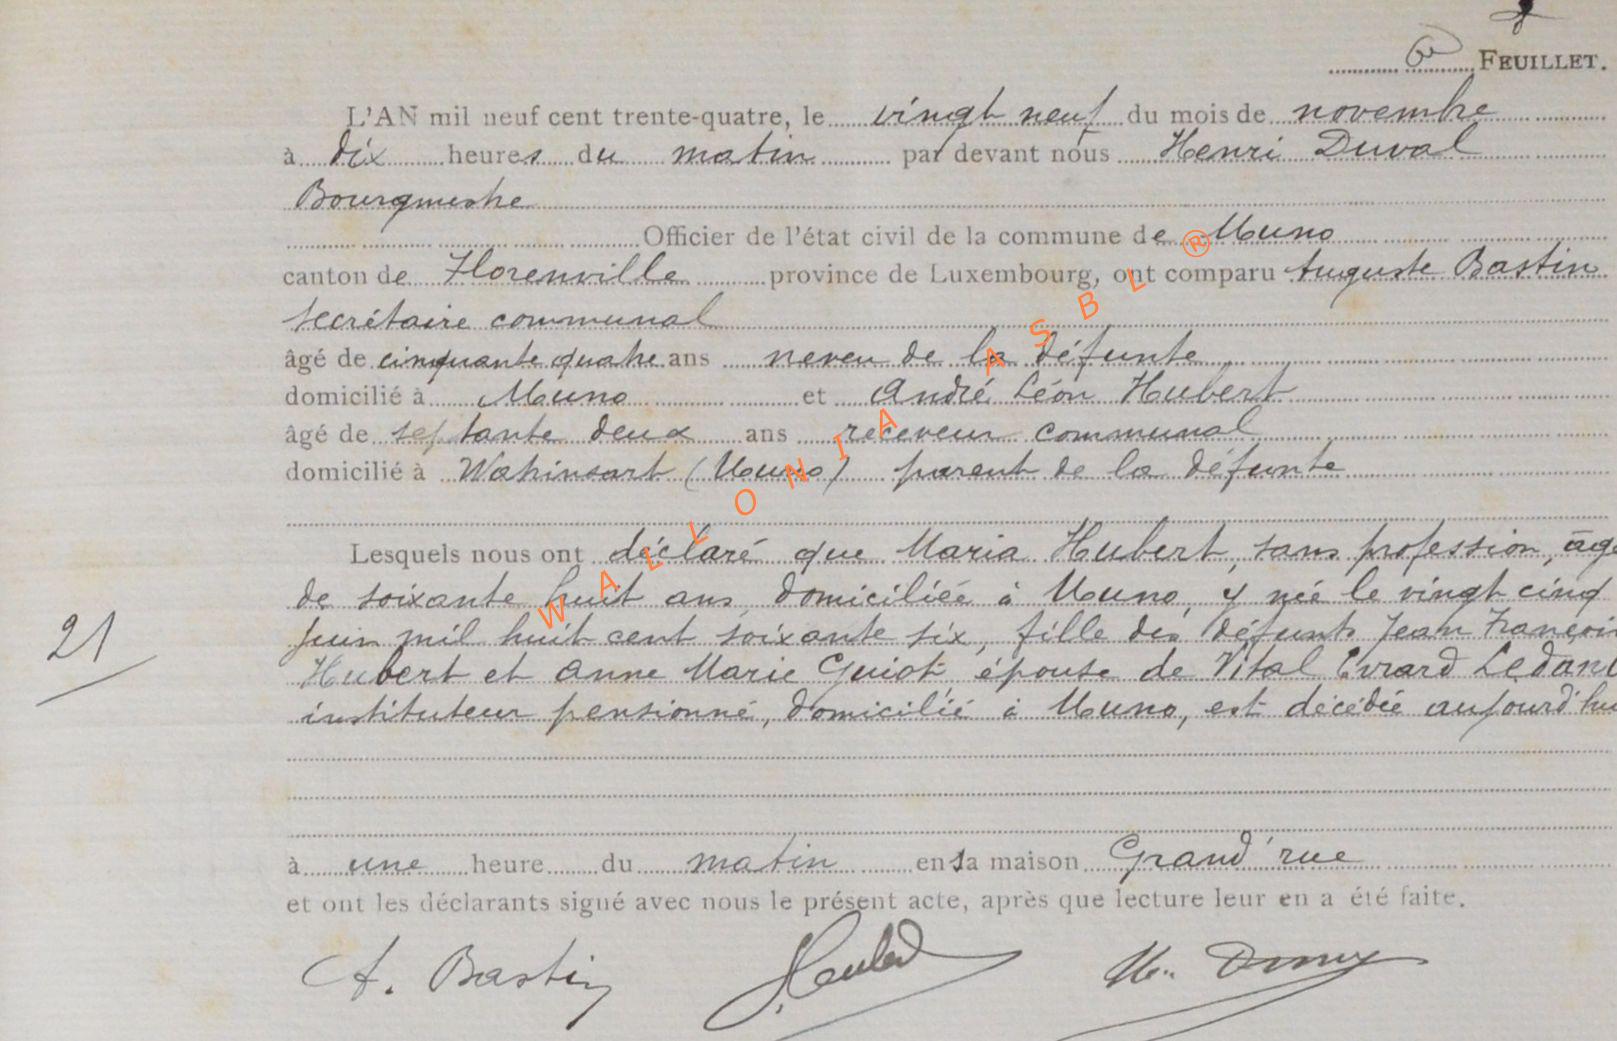 6e FEUILLET.
L'AN mil neuf cent trente-quatre, le vingt neuf du mois de novembre
à dix heures du matin par devant nous Henri Duval
Bourgmestre
Officier de l'état civil de la commune de Muno
canton de Florenville province de Luxembourg, ont comparu Auguste Bastin
secrétaire communal
âgé de cinquante quatre ans neveu de la défunte
domicilié à Muno et André Léon Hubert
âgé de septante deux ans receveur communal
domicilié à Wakinsart (Muno) parent de la défunte
Lesquels nous ont déclaré que Maria Hubert, sans profession, âgé
de soixante huit ans, domiciliée à Muno, y née le vingt cinq
21
juin mil huit cent soixante six, fille des défunts Jean François
Hubert et Anne Marie Guiot épouse de Vital Evrard Ledant
instituteur pensionné, domicilié à Muno, est décédée aujourd'hui
à une heure du matin en sa maison Grand'rue
et ont les déclarants signé avec nous le présent acte, après que lecture leur en a été faite.
A. Bastin Hubert
WALLONIA ASBL ®